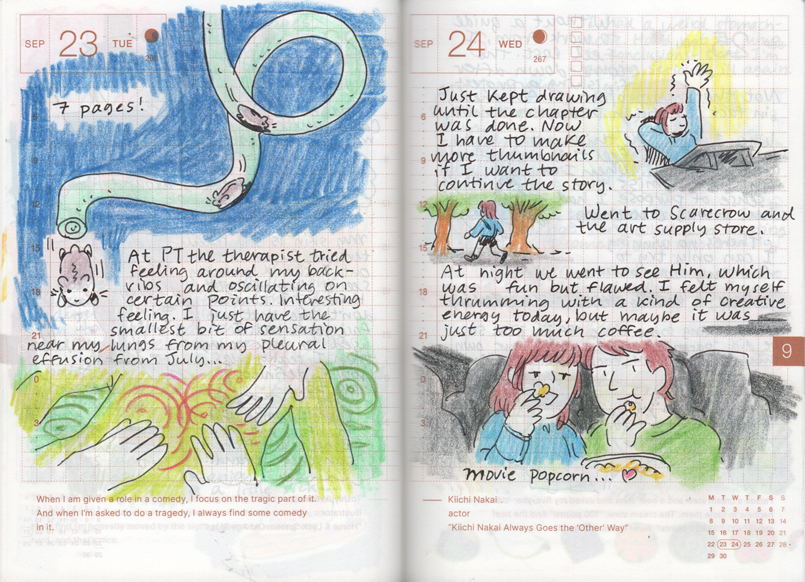 SEP 23 TUE
266
7 pages!
At PT the therapist tried
feeling around my back-
ribs and oscillating on
certain points. Interesting
feeling. I just have the
smallest bit of sensation
near my lungs from my pleural
effusion from July...
6
9
12
15
18
21
0
3
When I am given a role in a comedy, I focus on the tragic part of it.
And when I'm asked to do a tragedy, I always find some comedy
in it.
SEP 24 WED
267
Just kept drawing
until the chapter
was done. Now
I have to make
more thumbnails
if I want to
continue the story.
Went to Scarecrow and
the art supply store.
At night we went to see Him, which
was fun but flawed. I felt myself
thrumming with a kind of creative
energy today, but maybe it was
just too much coffee.
6
9
12
15
18
21
0
3
9
movie popcorn...
Kiichi Nakai
actor
"Kiichi Nakai Always Goes the 'Other' Way"
M T W T F S S
1 2 3 4 5 6 7
8 9 10 11 12 13 14
15 16 17 18 19 20 21
22 23 24 25 26 27 28
29 30